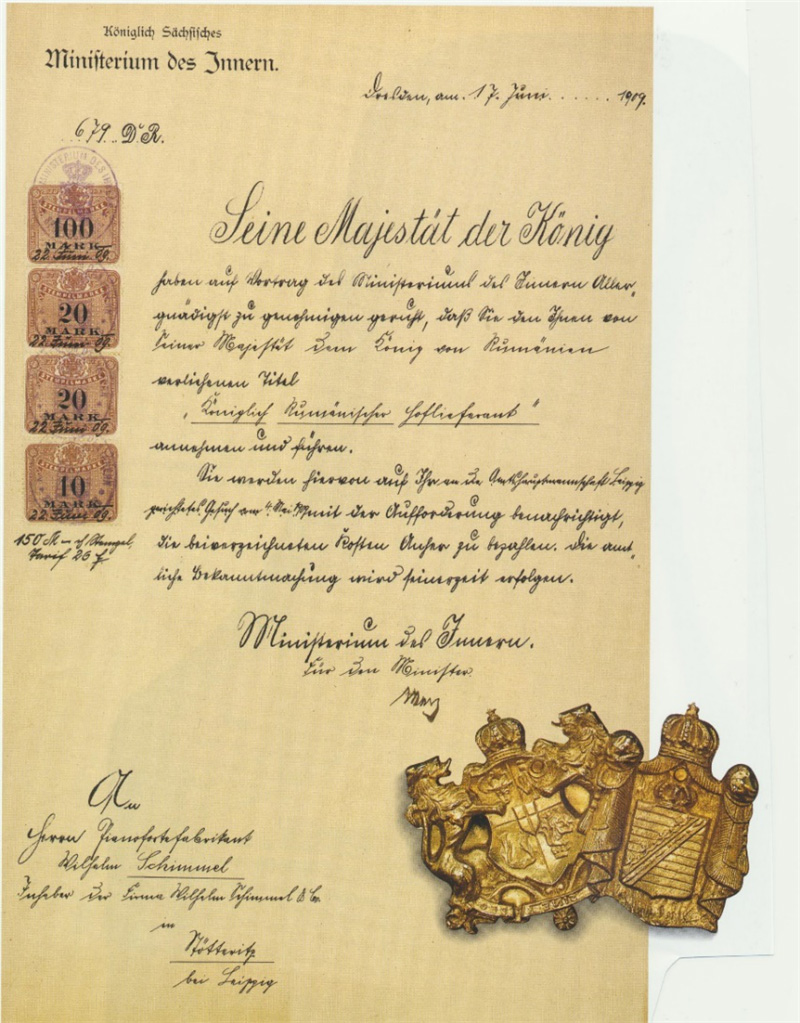 Königlich Sächsisches
Ministerium des Innern.
Dresden, am 17. Juni 1909.
679 D. R.
MINISTERIUM DES IN
STEMPELMARKE
100
MARK
22. Juni 09.
STEMPELMARKE
20
MARK
22. Juni 09.
STEMPELMARKE
20
MARK
22. Juni 09.
STEMPELMARKE
10
MARK
22. Juni 09.
150 M Stempel,
Tarif 25 f
Seine Majestät der König
haben auf Vortrag des Ministeriums des Innern Aller-
gnädigst zu genehmigen geruht, daß Sie den Ihnen von
Seiner Majestät dem König von Rumänien
verliehenen Titel
„Königlich Rumänischer Hoflieferant“
annehmen und führen.
Sie werden hiervon auf Ihr an die Amtshauptmannschaft Leipzig
gerichtetes Gesuch vom 4. Mai mit der Aufforderung benachrichtigt,
die beiverzeichneten Kosten Anher zu bezahlen. Die amt-
liche Bekanntmachung wird seinerzeit erfolgen.
Ministerium des Innern.
Für den Minister
An
Herrn Pianofortefabrikant
Wilhelm Schimmel
Inhaber der Firma Wilhelm Schimmel & Co.
in
Stötteritz
bei Leipzig